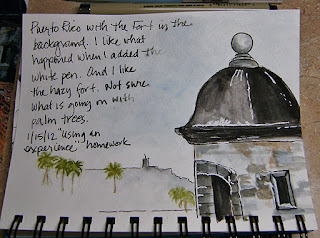 Puerto Rico with the fort in the
background. I like what
happened when I added the
white pen. And I like
the hazy fort. Not sure
what is going on with
palm trees.
1/15/12 "using an
experience" homework